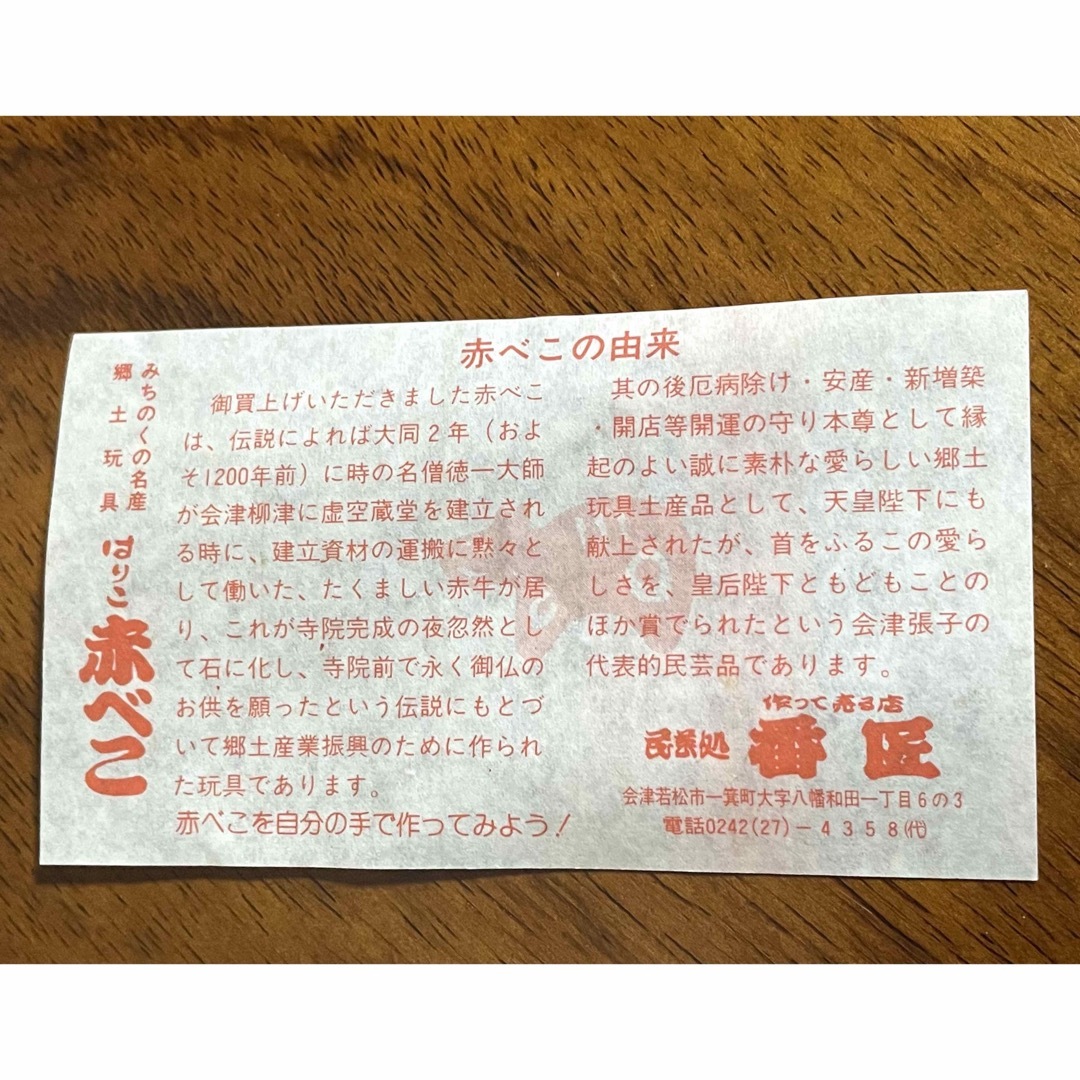 赤べこの由来
みちのくの名産
郷土玩具
はりこ
赤べこ
御買上げいただきました赤べこ
は、伝説によれば大同2年(およ
そ1200年前)に時の名僧徳一大師
が会津柳津に虚空蔵堂を建立され
る時に、建立資材の運搬に黙々と
して働いた、たくましい赤牛が居
り、これが寺院完成の夜忽然とし
て石に化し、寺院前で永く御仏の
お供を願ったという伝説にもとづ
いて郷土産業振興のために作られ
た玩具であります。
赤べこを自分の手で作ってみよう!
其の後厄病除け・安産・新増築
・開店等開運の守り本尊として縁
起のよい誠に素朴な愛らしい郷土
玩具土産品として、天皇陛下にも
献上されたが、首をふるこの愛ら
しさを、皇后陛下ともどもことの
ほか賞でられたという会津張子の
代表的民芸品であります。
作って売る店
民芸処 番匠
会津若松市一箕町大字八幡和田一丁目6の3
電話0242(27)-4358(代)